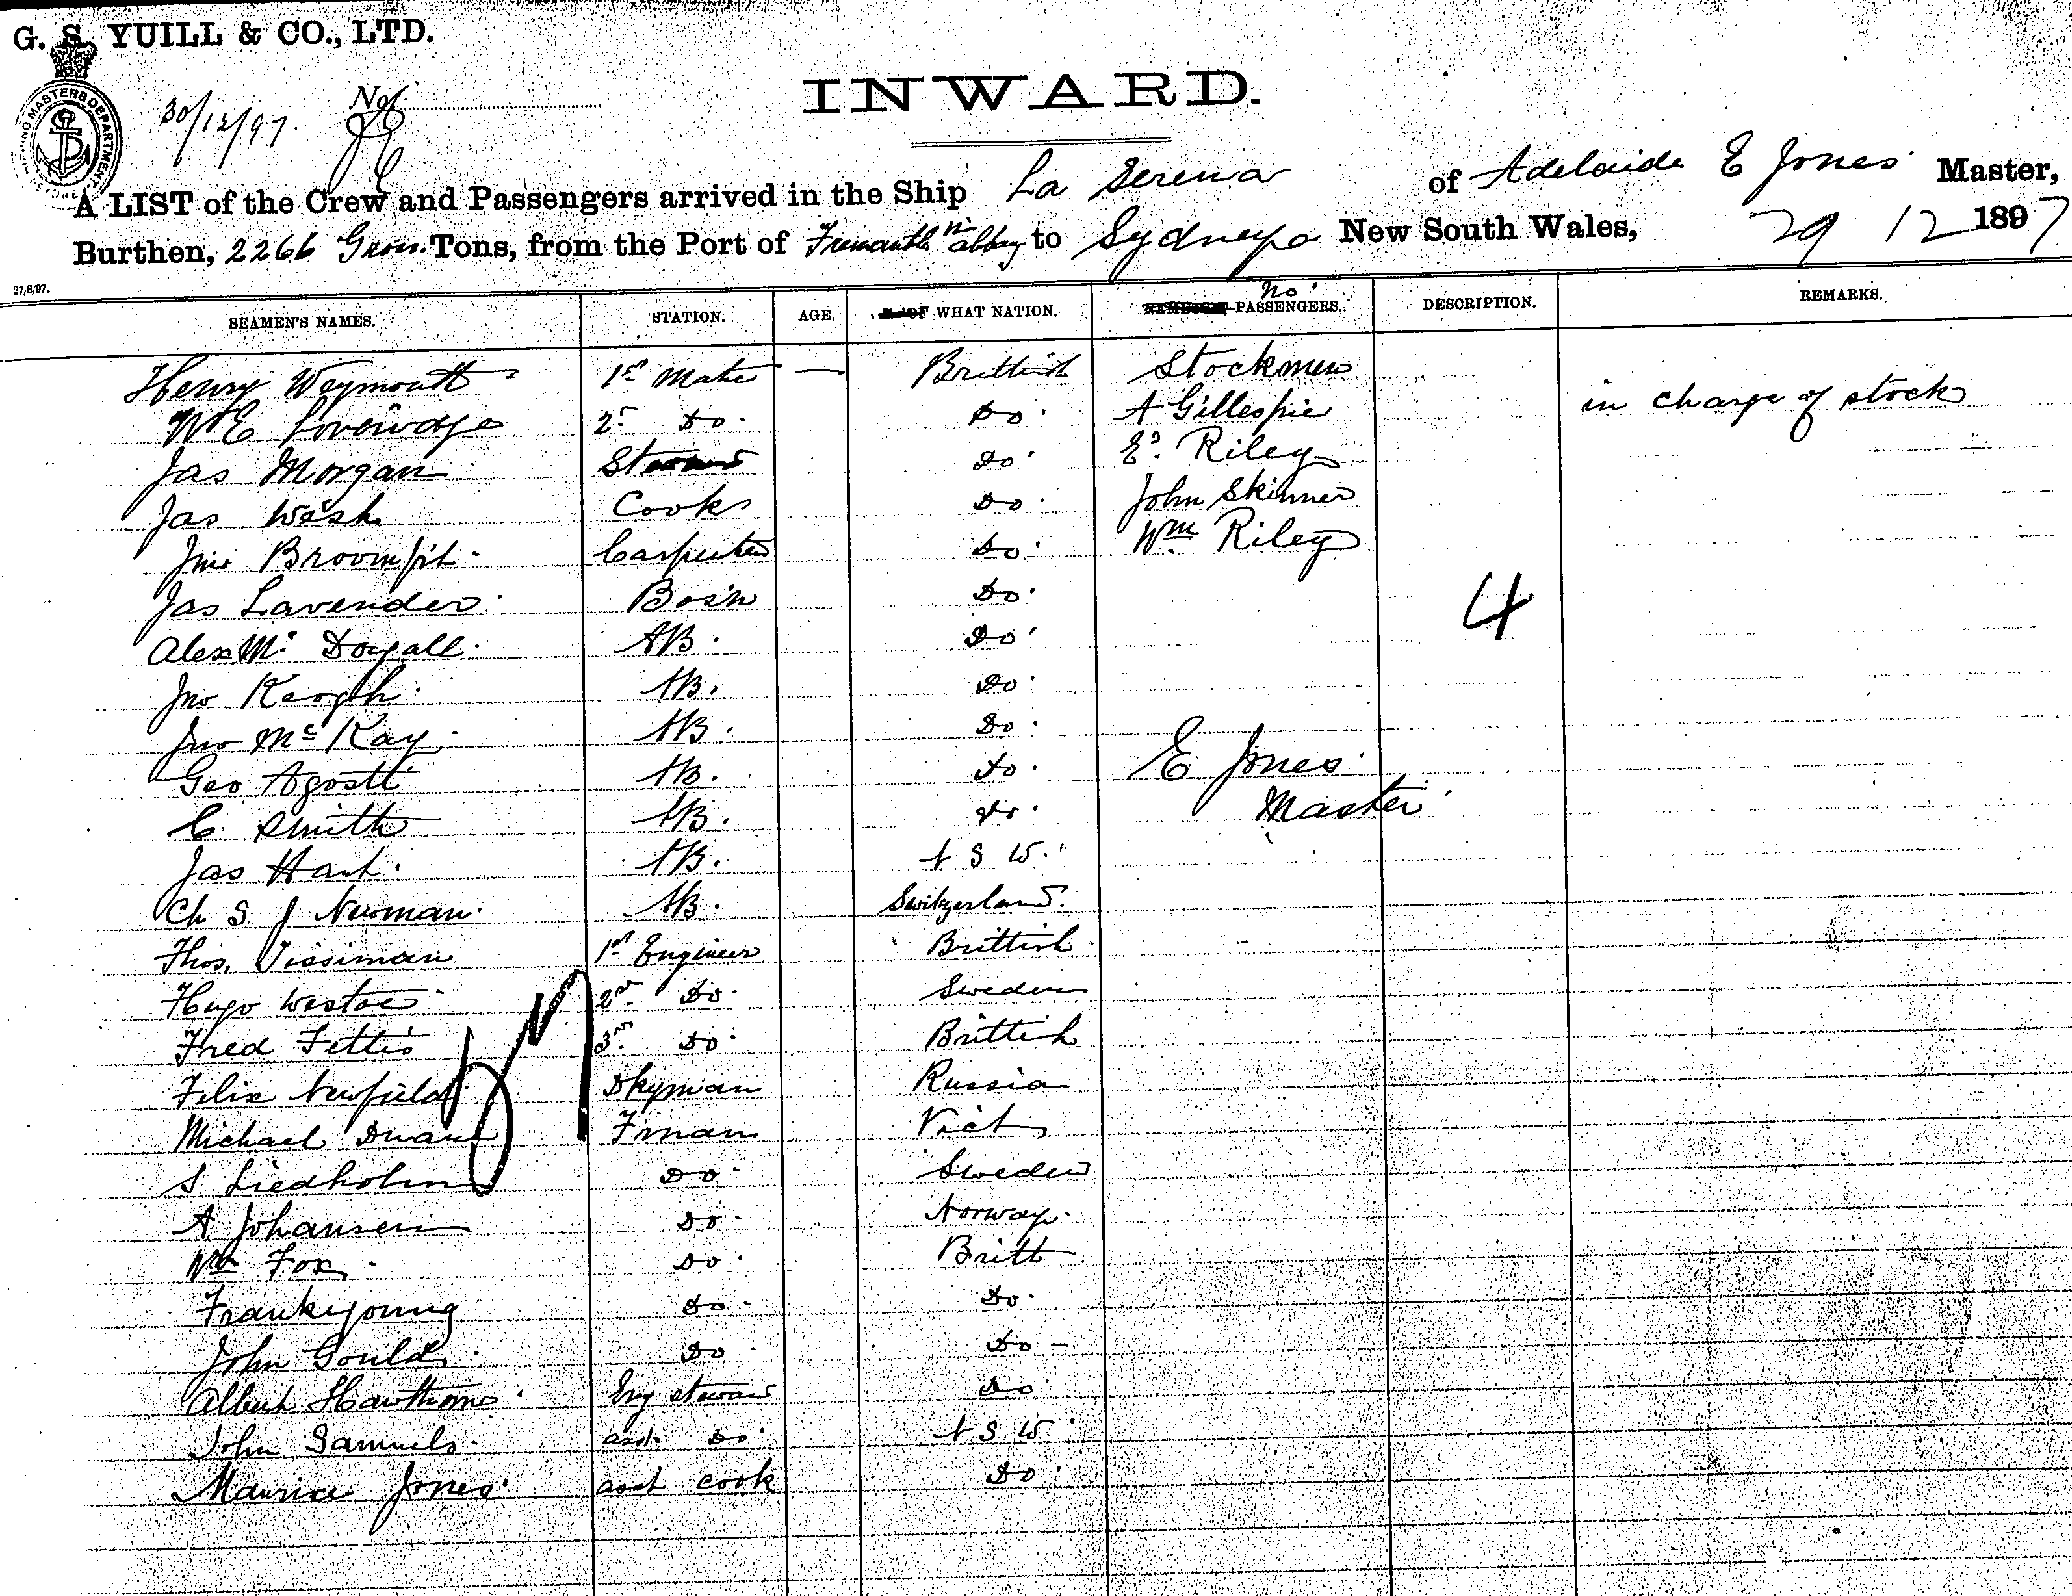 G. S. YUILL & CO., LTD.
30/12/97. No
INWARD.
A LIST of the Crew and Passengers arrived in the Ship La Serena of Adelaide E Jones Master,
Burthen, 2266 Gross Tons, from the Port of Fremantle to Sydney New South Wales, 29 12 1897
27/8/97.
SEAMEN'S NAMES. STATION. AGE OF WHAT NATION. No PASSENGERS. DESCRIPTION. REMARKS.
Henry Weymouth 1st Mate — Brittish Stockmen
W E Loveridge 2nd Do. Do. A Gillespie in charge of stock
Jas Morgan Steward Do. Ed. Riley
Jas Wash Cook Do. John Skinner
Jno Broom Carpenter Do. Wm Riley
Jas Lavender Bosn Do. 4
Alex Mc Dogall AB. Do.
Jno Keogh AB. Do.
Jno McKay AB. Do. E Jones
Geo Agostt AB. Do. Master
C. Smith AB. Do.
Jas Hart. AB. N S W.
Ch S J Newman. AB. Switzerland.
Thos. Vissiman 1st Engineer Brittish
Hugo 2nd Do. Sweden
Fred Fettis 3rd Do. Brittish
Felix Newfield Dkyman Russia
Michael Duane Frman Vict
S Liedholm Do. Sweden
A Johansen Do. Norway.
Wm Fox. Do. Britt
Frank young Do. Do.
John Gould. Do Do -
Albert Hawthorne Eng steward Do
John Samuels. asst Do. N S W.
Maurice Jones. asst cook Do.